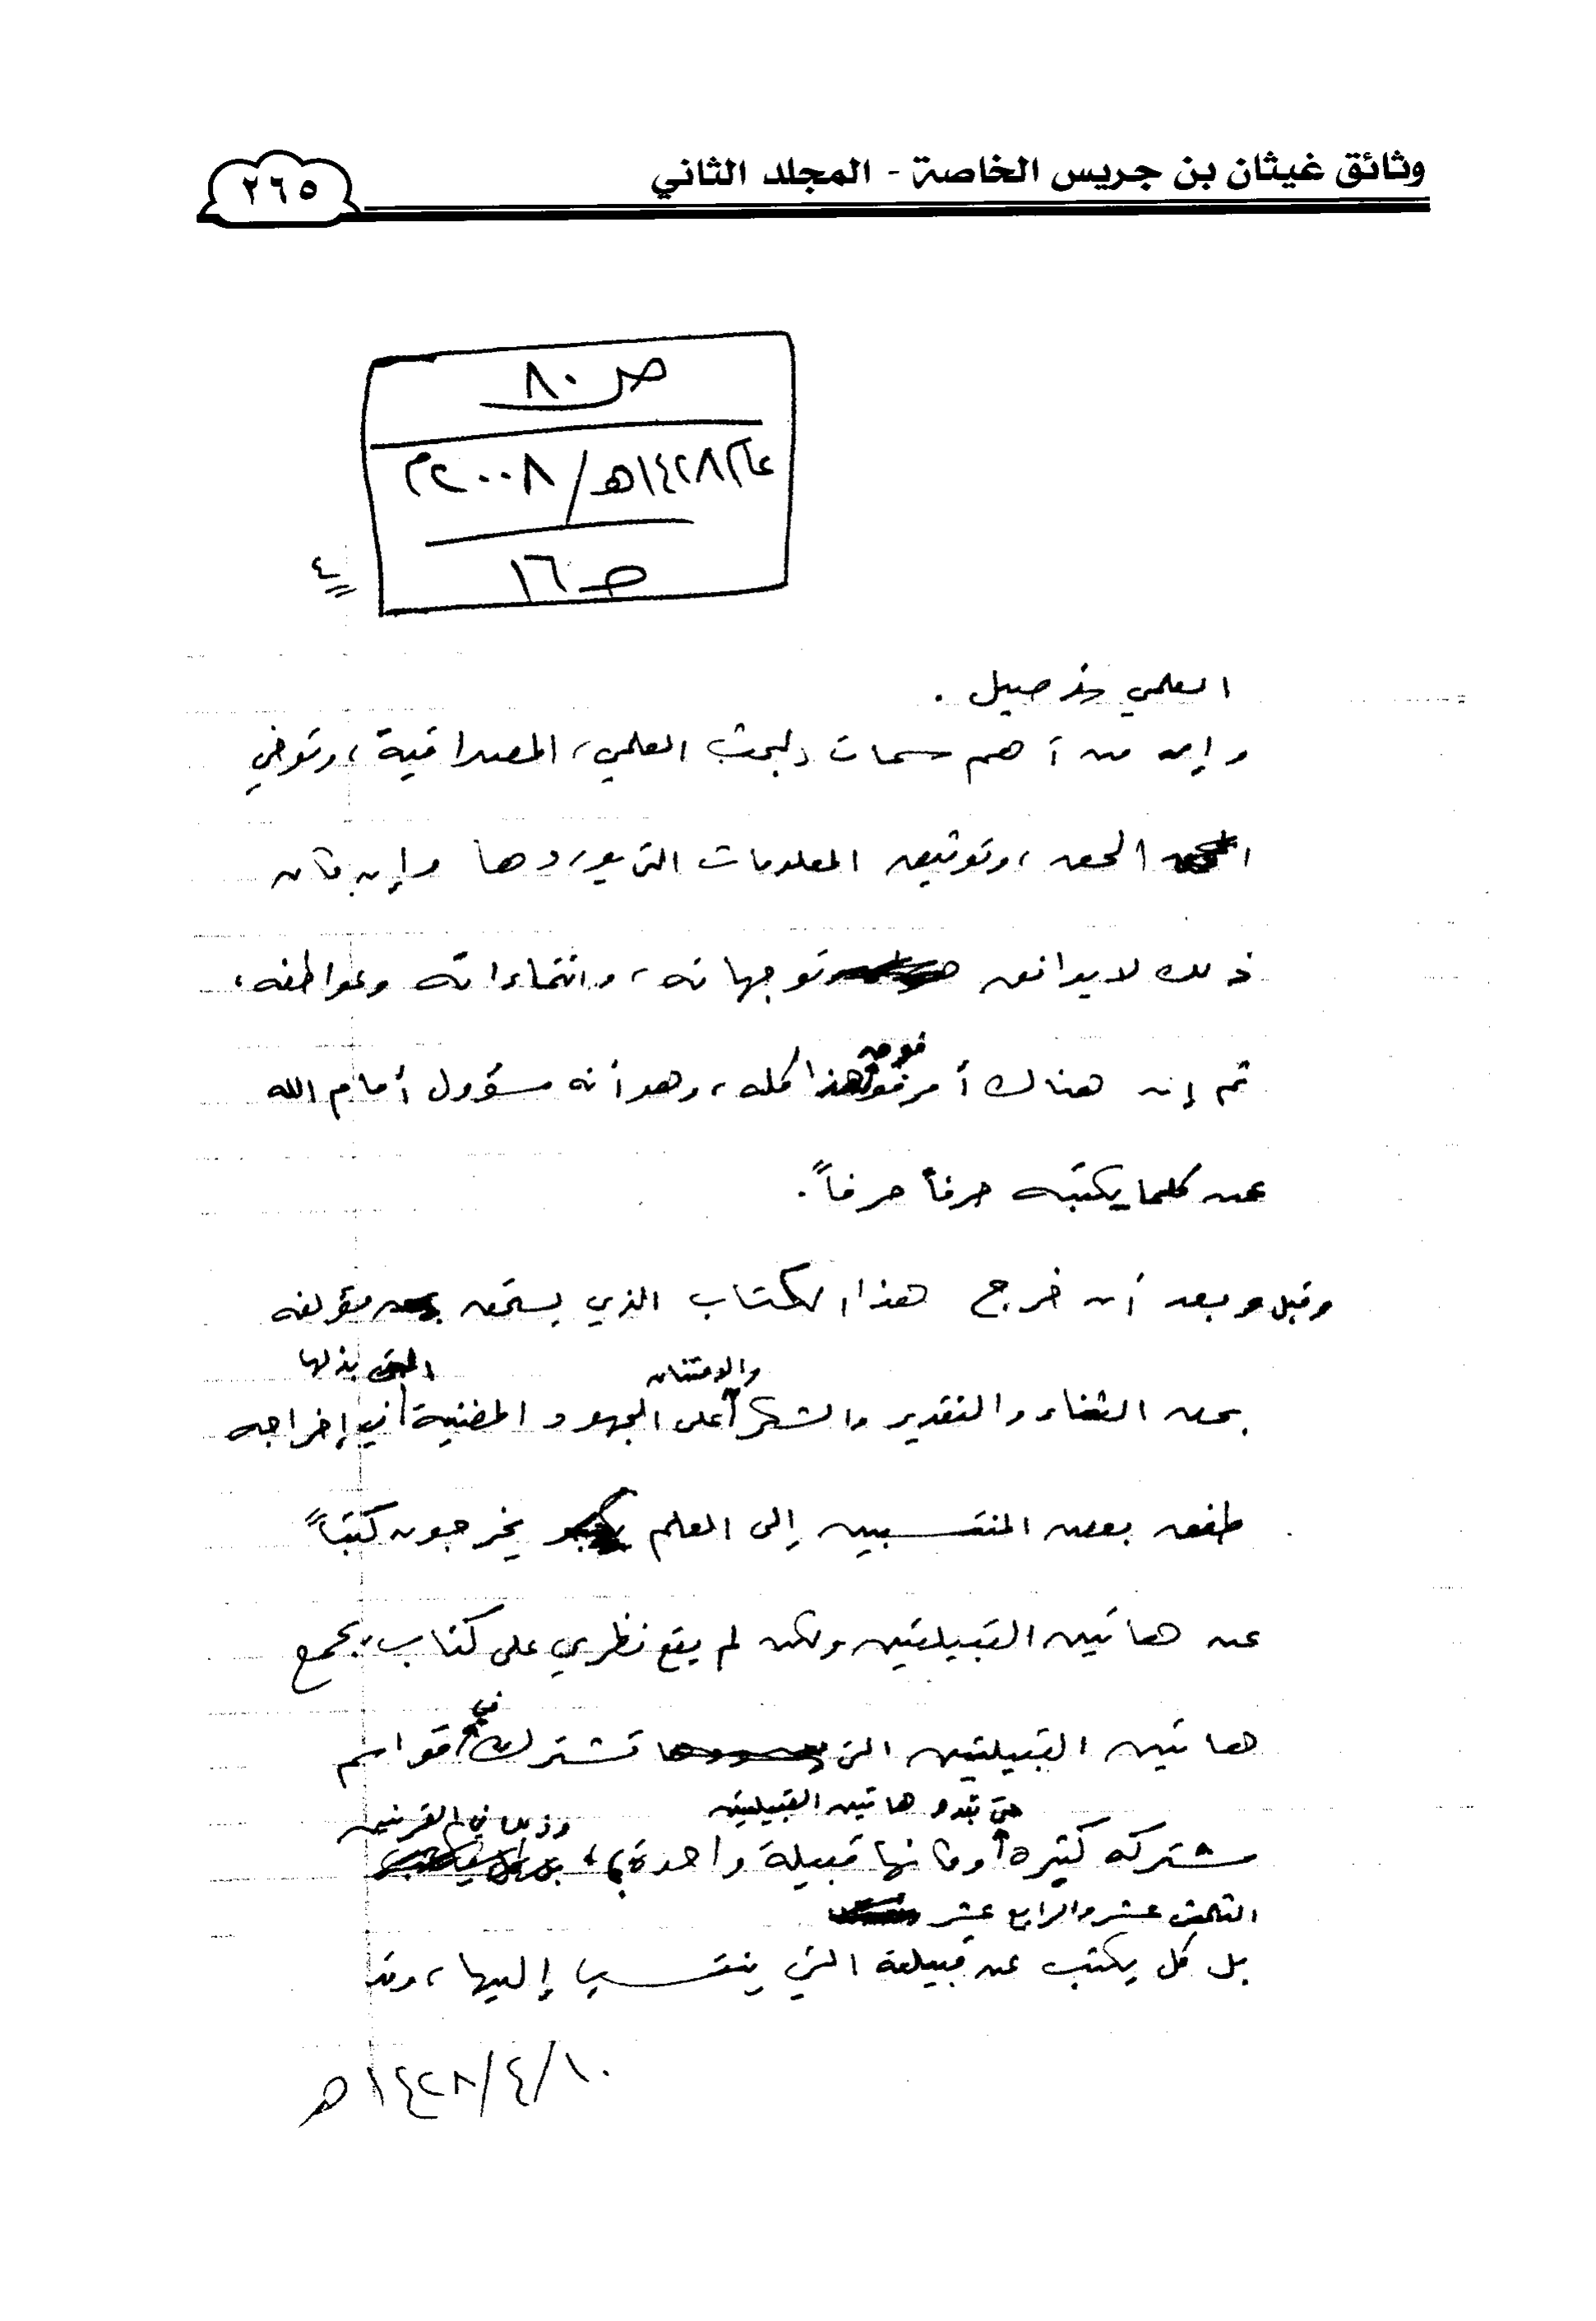 وثائق غيثان بن جريس الخاصة - المجلد الثاني
٢٦٥
ص ٨٠
عام ١٤٢٨هـ / ٢٠٠٨م
صـ ١٦
٤
العلمي .
وإن من أهم سمات البحث العلمي، المصداقية، وتوخي
الحق، وتوثيق المعلومات التي يوردها وإن كان
ذلك لا يوافق توجهاته، وانتماءاته وعواطفه،
ثم إن هناك أمر فوق هذا كله، وهو أنه مسؤول أمام الله
عن كلما يكتبه حرفاً حرفاً.
وقبل وبعد أن خرج هذا الكتاب الذي يستحق مؤلفه
بحق الثناء والتقدير والشكر والامتنان على الجهود المضنية التي بذلها في إخراجه
طفق بعض المنتسبين إلى العلم يخرجون كتباً
عن هاتين القبيلتين ولكن لم يقع نظري على كتاب يجمع
هاتين القبيلتين التي تشترك في قواسم
مشتركه كثيرة حتى تبدو هاتين القبيلتين وكأنها قبيلة واحدة، وذلك في القرنين
الثالث عشر والرابع عشر
بل كل يكتب عن قبيلته التي ينتسب إليها، وقد
١٠/٤/١٤٢٨هـ